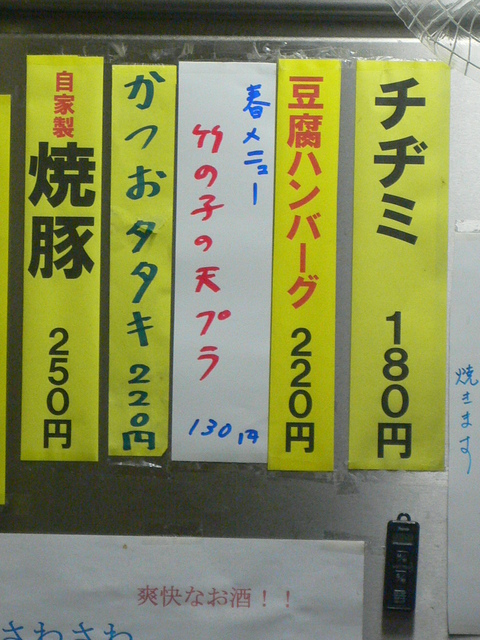 チヂミ 180円
豆腐ハンバーグ 220円
春メニュー
竹の子の天プラ 130円
かつおタタキ 220円
自家製
焼豚 250円
焼きます
爽快なお酒！！
さわさわ